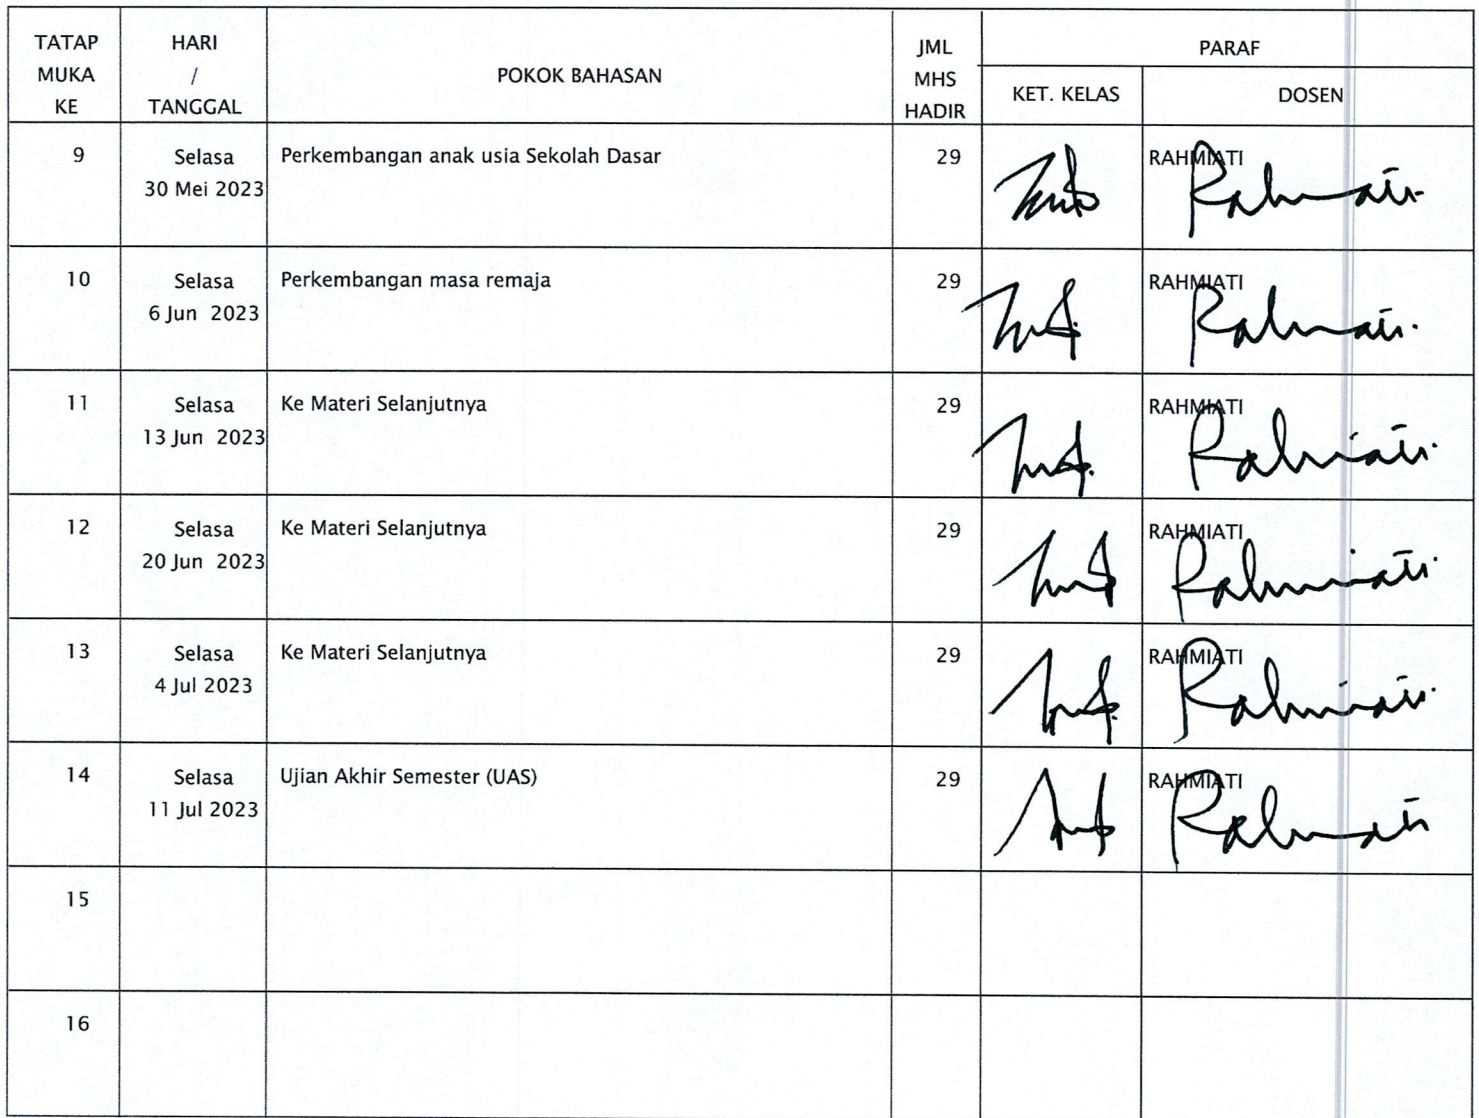 TATAP MUKA KE
HARI / TANGGAL
POKOK BAHASAN
JML MHS HADIR
PARAF
KET. KELAS
DOSEN
9
Selasa
30 Mei 2023
Perkembangan anak usia Sekolah Dasar
29
RAHMIATI
Rahmiati
10
Selasa
6 Jun 2023
Perkembangan masa remaja
29
RAHMIATI
Rahmiati
11
Selasa
13 Jun 2023
Ke Materi Selanjutnya
29
RAHMIATI
Rahmiati
12
Selasa
20 Jun 2023
Ke Materi Selanjutnya
29
RAHMIATI
Rahmiati
13
Selasa
4 Jul 2023
Ke Materi Selanjutnya
29
RAHMIATI
Rahmiati
14
Selasa
11 Jul 2023
Ujian Akhir Semester (UAS)
29
RAHMIATI
Rahmiati
15
16